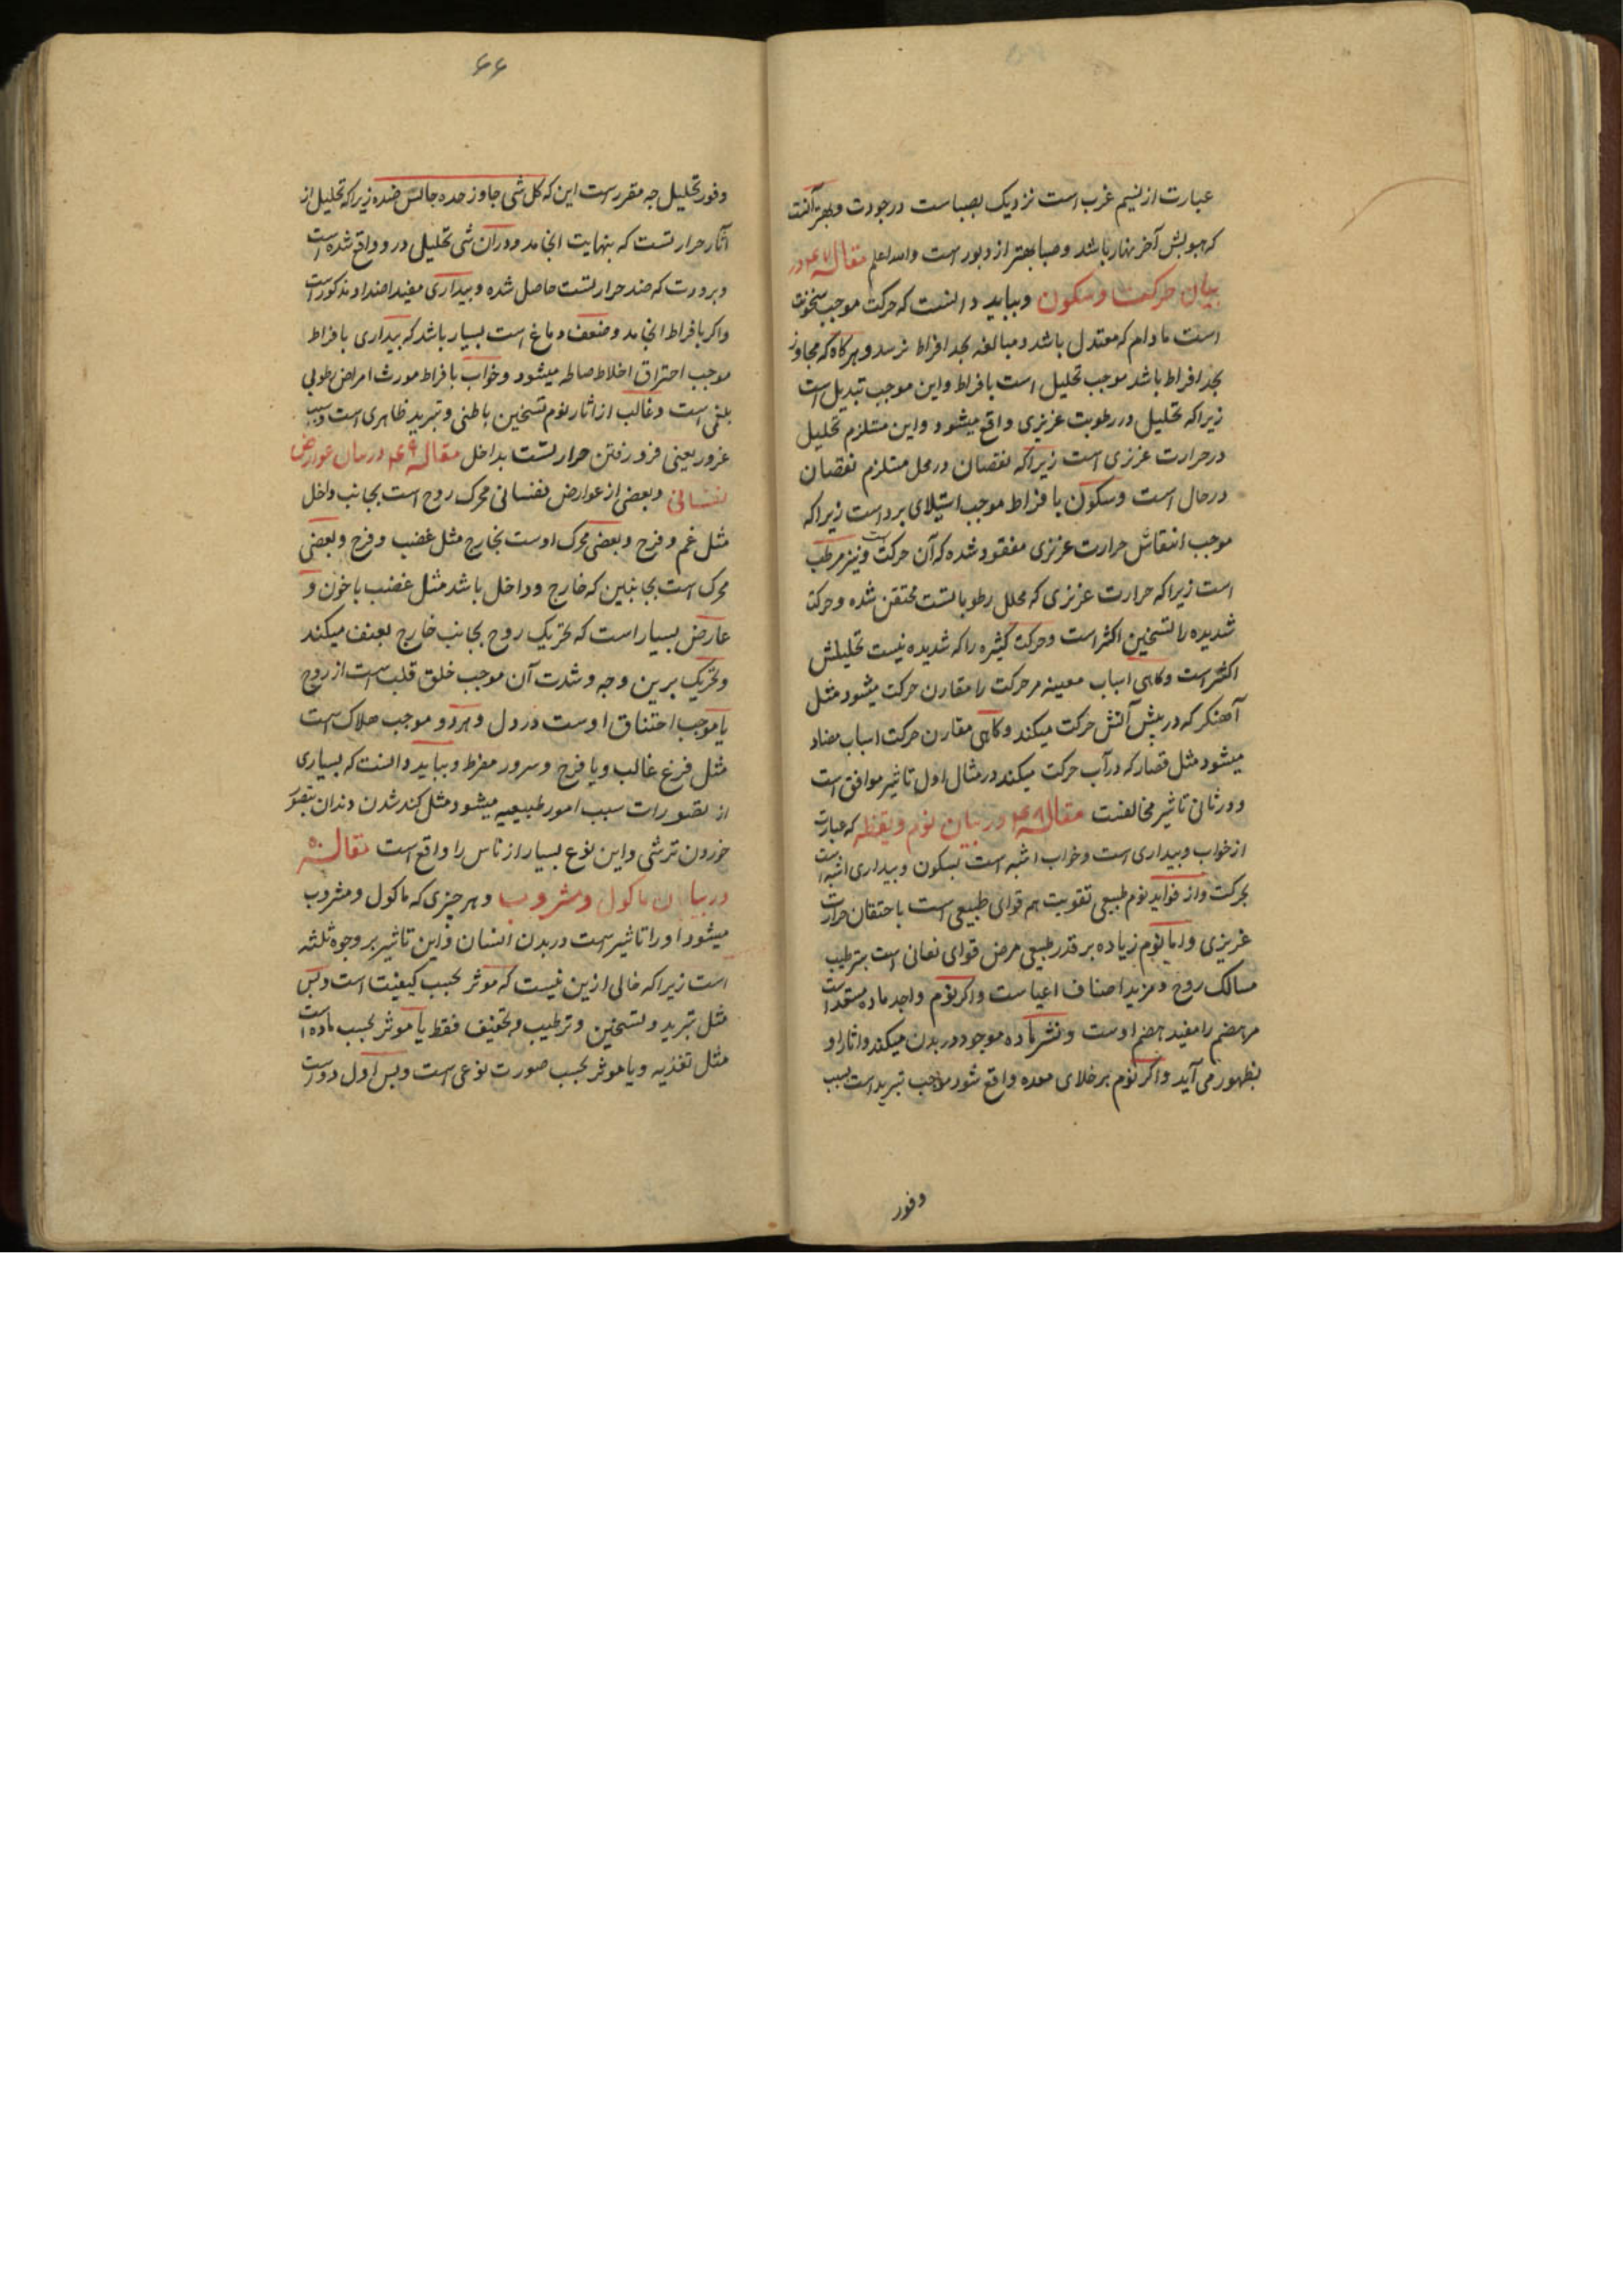 عبارت از نسیم غرب است نزدیک بصباست در جودت و بهتر آنست
که هبوبش آخر نهار باشد و صبا بهتر از دبور است والله اعلم مقاله ۴۷ در
بیان حرکت و سکون و بباید دانست که حرکت موجب سخونت
است مادام که معتدل باشد و مبالغه بحد افراط نرسد و هرکاه که مجاوز
بحد افراط باشد موجب تحلیل است بافراط و این موجب تبدیل است
زیراکه تحلیل در رطوبت غریزی واقع میشود و این مستلزم تحلیل
در حرارت غریزی است زیراکه نقصان در محل مستلزم نقصان
در حال است و سکون بافراط موجب استیلای برد است زیراکه
موجب انتقاش حرارت غریزی مفقود شده که آن حرکت است و نیز مرطب
است زیراکه حرارت غریزی که محلل رطوباتست محتقن شده و حرکت
شدیده را تسخین اکثر است و حرکت کثیره را که شدیده نیست تحلیلش
اکثر است و کاهی اسباب معینه مر حرکت را مقارن حرکت میشود مثل
آهنکر که در پیش آتش حرکت میکند و کاهی مقارن حرکت اسباب مضاد
میشود مثل قصار که در آب حرکت میکند در مثال اول تاثیر موافق است
و در ثانی تاثیر مخالفت مقاله ۴۸ در بیان نوم و یقظه که عبارت
از خواب و بیداری است و خواب اشبه است بسکون و بیداری اشبه است
بحرکت و از فواید نوم طبیعی تقویت هم قوای طبیعی است باحتقان حرارت
غریزی و اما نوم زیاده بر قدر طبیعی مرض قوای نفسانی است بترطیب
مسالک روح و مزید اصناف اعیاست و اکر نوم واجد ماده مستعد است
مر هضم را مفید هضم اوست و نشر ماده موجود در بدن میکند و اثار او
بظهور می آید و اکر نوم بر خلای معده واقع شود موجب تبرید است بسبب
وفور
۶۶
وفور تحلیل چه مقررست این که کل شی جاوز حده جانس ضده زیراکه تحلیل از
آثار حرارتست که بنهایت انجامد و در آن شی تحلیلی در و واقع شده است
و برودت که ضد حرارتست حاصل شده و بیداری مفید اضداد مذکور است
و اکر بافراط انجامد و ضعف دماغ است بسیار باشد که بیداری بافراط
موجب احتراق اخلاط صالحه میشود و خواب بافراط مورث امراض رطوبی
بلغمی است و غالب از اثار نوم تسخین باطنی و تبرید ظاهری است و سبب
غرور یعنی فرو رفتن حرارتست بداخل مقاله ۴۹ در بیان عوارض
نفسانی و بعضی از عوارض نفسانی محرک روح است بجانب داخل
مثل غم و فزع و بعضی محرک اوست بخارج مثل غضب و فرح و بعضی
محرک است بجانبین که خارج و داخل باشد مثل غضب با خون و
عارض بسیار است که تحریک روح بجانب خارج بعنف میکند
و تحریک برین وجه و شدت آن موجب خلق قلب است از روح
یا موجب اختناق اوست در دل و هر دو موجب هلاک است
مثل فزع غالب و یا فرح و سرور مفرط و بباید دانست که بسیاری
از تصورات سبب امور طبیعیه میشود مثل کند شدن دندان بتصور
خوردن ترشی و این نوع بسیار از ناس را واقع است مقاله ۵۰
در بیان ماکول و مشروب و هر چیزی که ماکول و مشروب
میشود او را تاثیرست در بدن انسان و این تاثیر بر وجوه ثلثه
است زیراکه خالی ازین نیست که موثر بحسب کیفیت است و بس
مثل تبرید و تسخین و ترطیب و تجفیف فقط یا موثر بحسب ماده است
مثل تغذیه و یا موثر بحسب صورت نوعی است و بس اول دو است